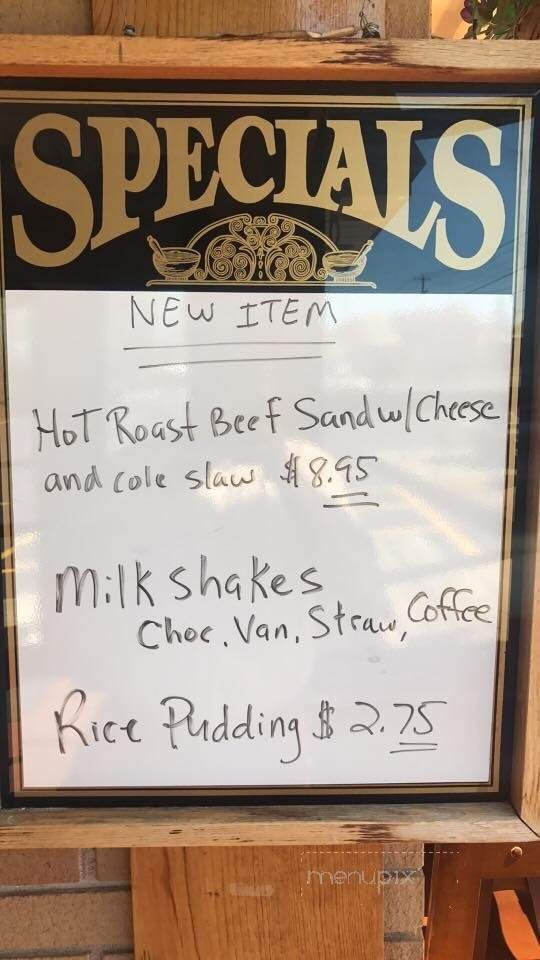 SPECIALS
NEW ITEM
Hot Roast Beef Sand w/Cheese
and cole slaw $8.95
Milk shakes
Choc, Van, Straw, Coffee
Rice Pudding $2.75
menupix